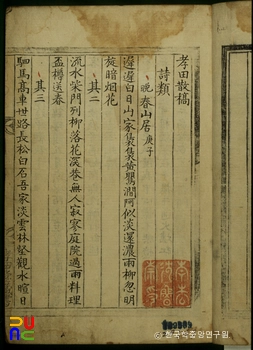 孝田散稿
詩類
晩春山居 庚子
遲遲白日山家裊裊黃鸎澗阿似淡還濃雨柳忽明
旋暗烟花
其二
流水柴門列柳落花深巷無人寂寥庭院過雨料理
盃樽送春
其三
駟馬高車世路長松白石吾家淡雲林壑觀水暄日
한국학중앙연구원